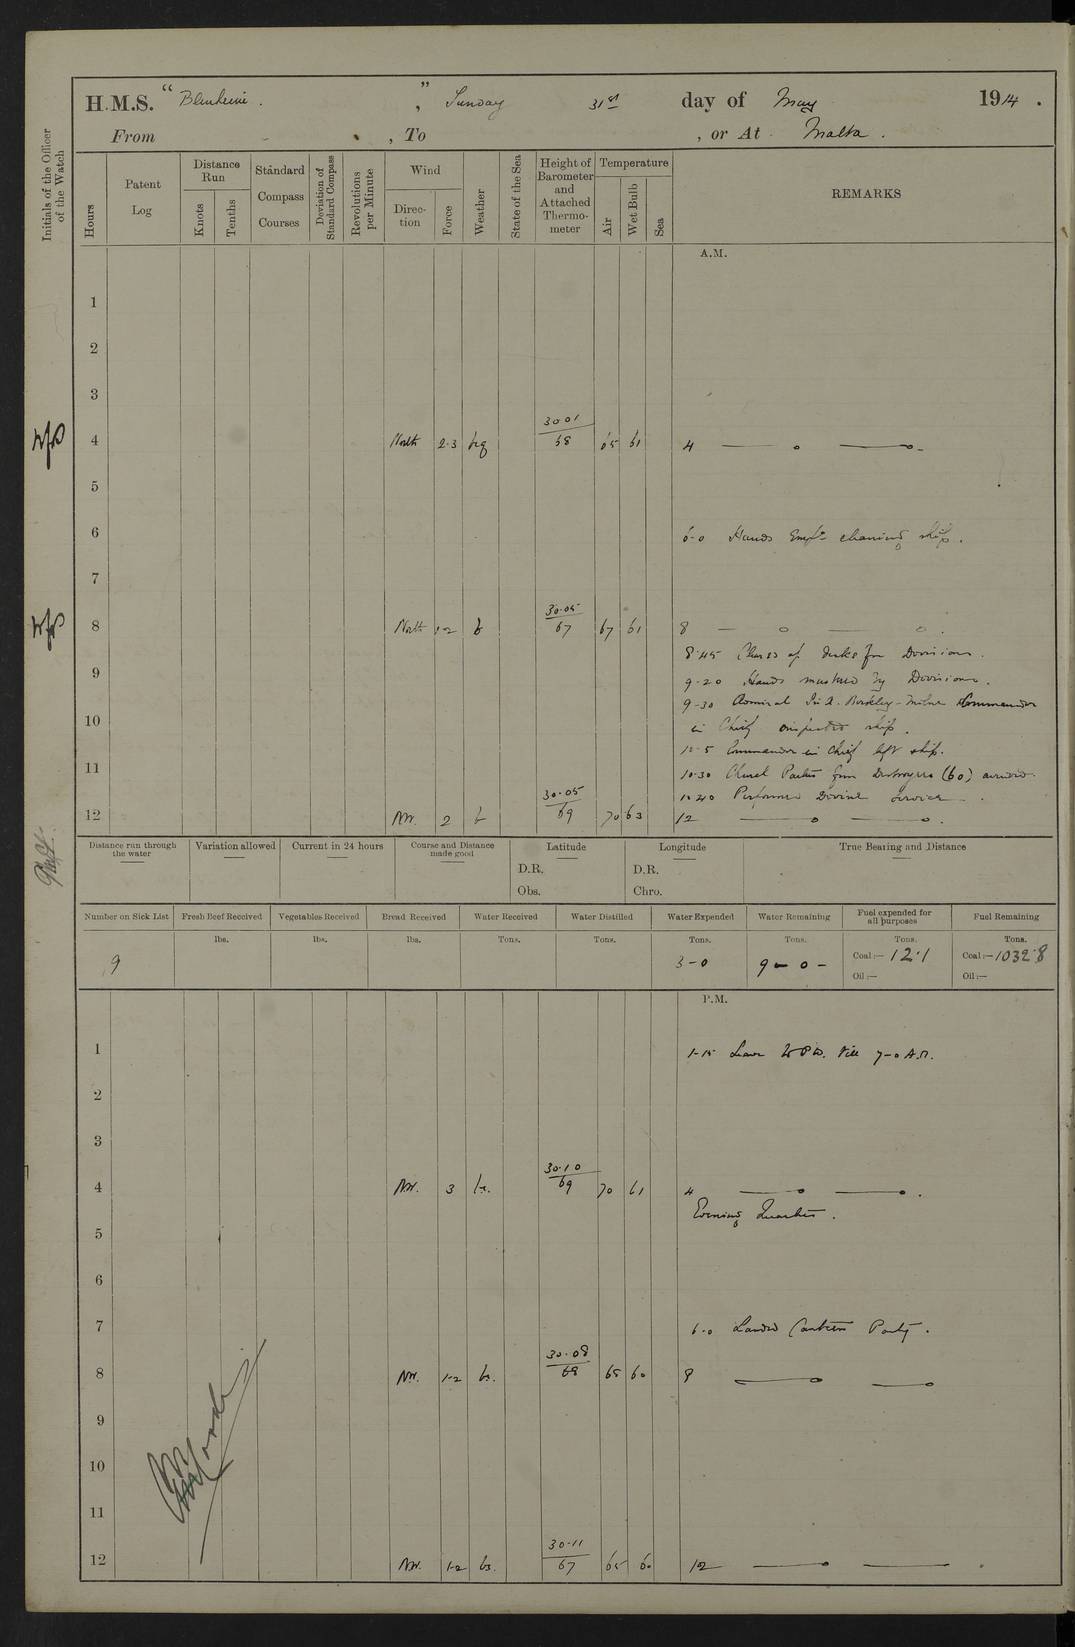 H.M.S. “ Blenheim . ” , Sunday 31st day of May 1914 .
From , To , or At Malta .
Initials of the Officer of the Watch
Hours
Patent Log
Distance Run
Knots
Tenths
Standard Compass Courses
Deviation of Standard Compass
Revolutions per Minute
Wind
Direction
Force
Weather
State of the Sea
Height of Barometer and Attached Thermometer
Temperature
Air
Wet Bulb
Sea
REMARKS
A.M.
1
2
3
4 North 2-3 bcq 30 01 / 68 65 61 4 — o — o -
5
6 6-0 Hands Empd cleaning ship .
7
8 North 1-2 b 30.05 / 67 67 61 8 — o — o .
8.45 Divisions .
9 9-20 Hands mustered by Divisions .
9-30 Admiral Sir A. Berkley-Milne Commander
10 in Chief inspected ship .
10-5 Commander in Chief left ship .
11 10.30 Church Parties from Destroyers (60) arrived .
10.40 Performed Divine Service .
12 NW. 2 b 30.05 / 69 70 63 12 — o — o .
Distance run through the water
Variation allowed
Current in 24 hours
Course and Distance made good
Latitude
D.R.
Obs.
Longitude
D.R.
Chro.
True Bearing and Distance
Number on Sick List
Fresh Beef Received
Vegetables Received
Bread Received
Water Received
Water Distilled
Water Expended
Water Remaining
Fuel expended for all purposes
Fuel Remaining
lbs. lbs. lbs. Tons. Tons. Tons. Tons. Tons. Tons.
9 3-0 9-0- Coal:— 12.1 Coal:— 1032.8
Oil:— Oil:—
P.M.
1 1-15 Leave to P.W. till 7-0 A.M.
2
3
4 NW. 3 bc. 30.10 / 69 70 61 4 — o — o .
Evening Quarters .
5
6
7 6-0 Landed Canteen Party .
8 NW. 1-2 bc. 30.08 / 68 65 60 8 — o — o
9
10
11
12 NW. 1-2 bc. 30.11 / 67 65 60 12 — o — .